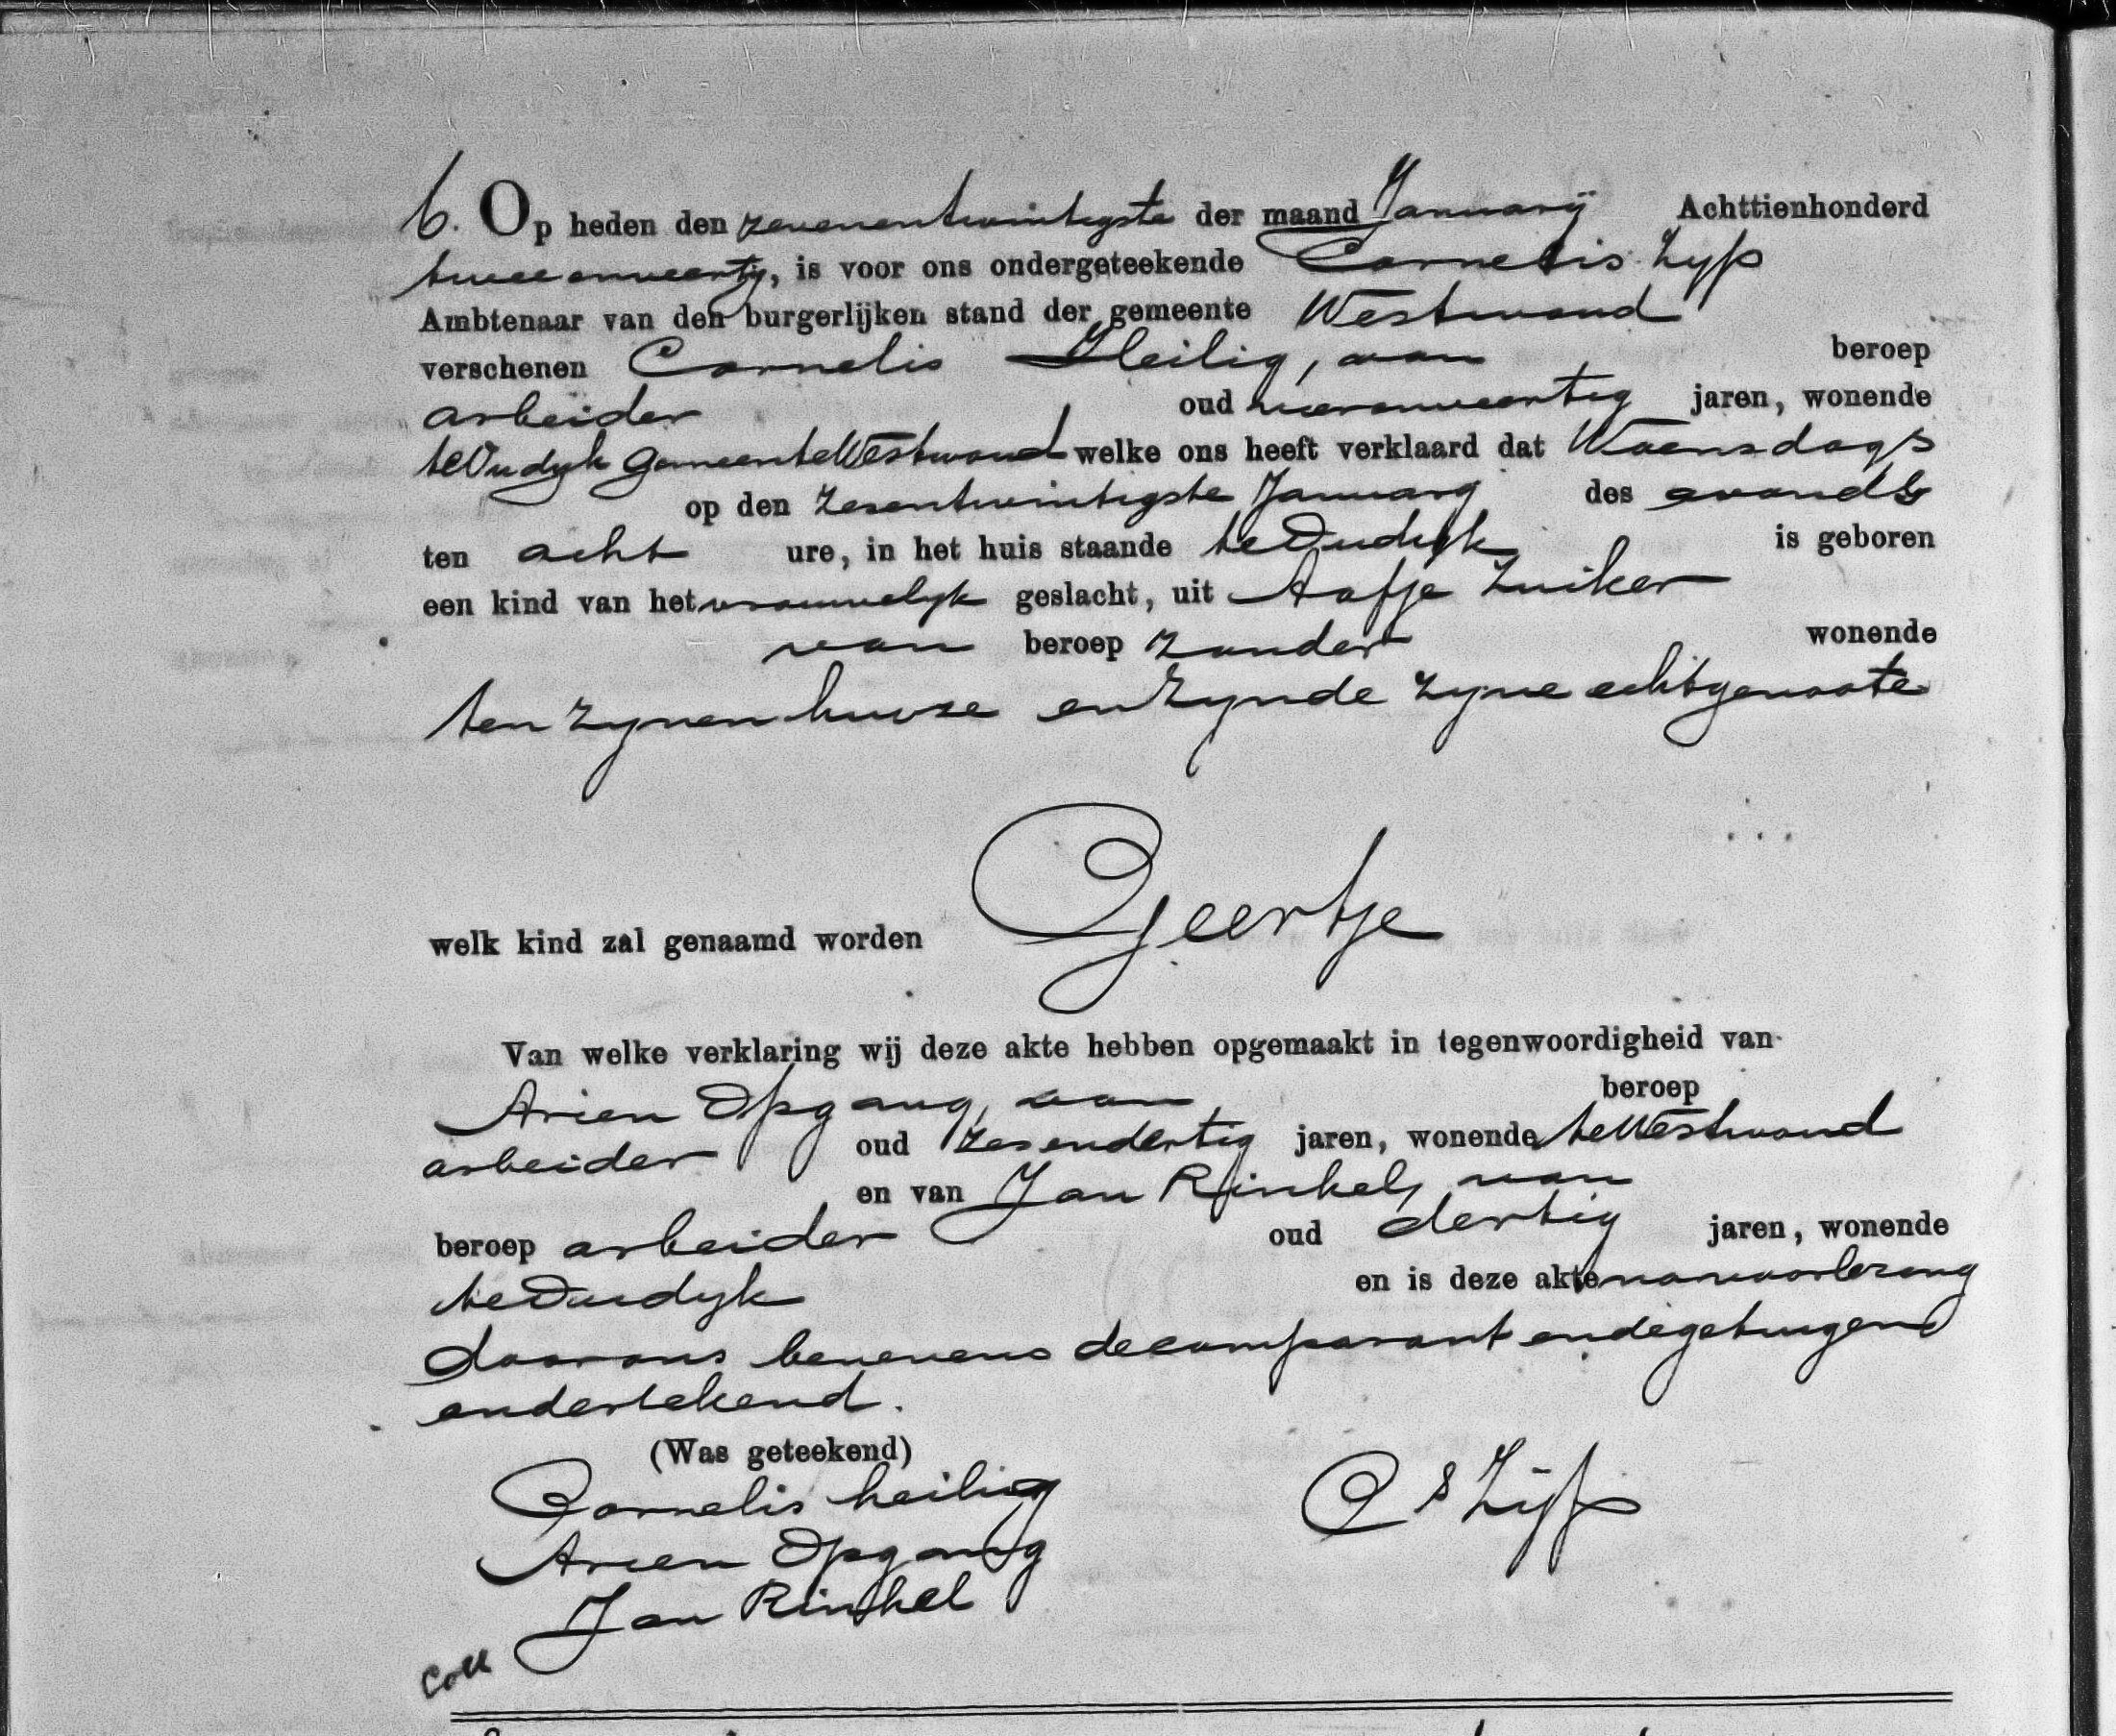 6. Op heden den zevenentwintigste der maand Januarij Achttienhonderd
tweeenveertig, is voor ons ondergeteekende Cornelis Zyp
Ambtenaar van den burgerlijken stand der gemeente Westwoud
verschenen Cornelis Heilig, van beroep
arbeider oud vierenveertig jaren, wonende
te Oudyk gemeente Westwoud welke ons heeft verklaard dat Woensdags
op den zesentwintigste January des avonds
ten acht ure, in het huis staande te Oudyk is geboren
een kind van het vrouwelyk geslacht, uit Aafje Zuiker
van beroep zonder wonende
ten zynen huize en zynde zyne echtgenoote
welk kind zal genaamd worden Geertje
Van welke verklaring wij deze akte hebben opgemaakt in tegenwoordigheid van
Arien Opgang, van beroep
arbeider oud zesendertig jaren, wonende te Westwoud
en van Jan Rinkel, van
beroep arbeider oud dertig jaren, wonende
te Oudyk en is deze akte na voorlezing
door ons benevens de comparant en de getuigen
ondertekend.
(Was geteekend)
Cornelis heilig
Arien Opgang
Jan Rinkel
Cs Zijp
Coll